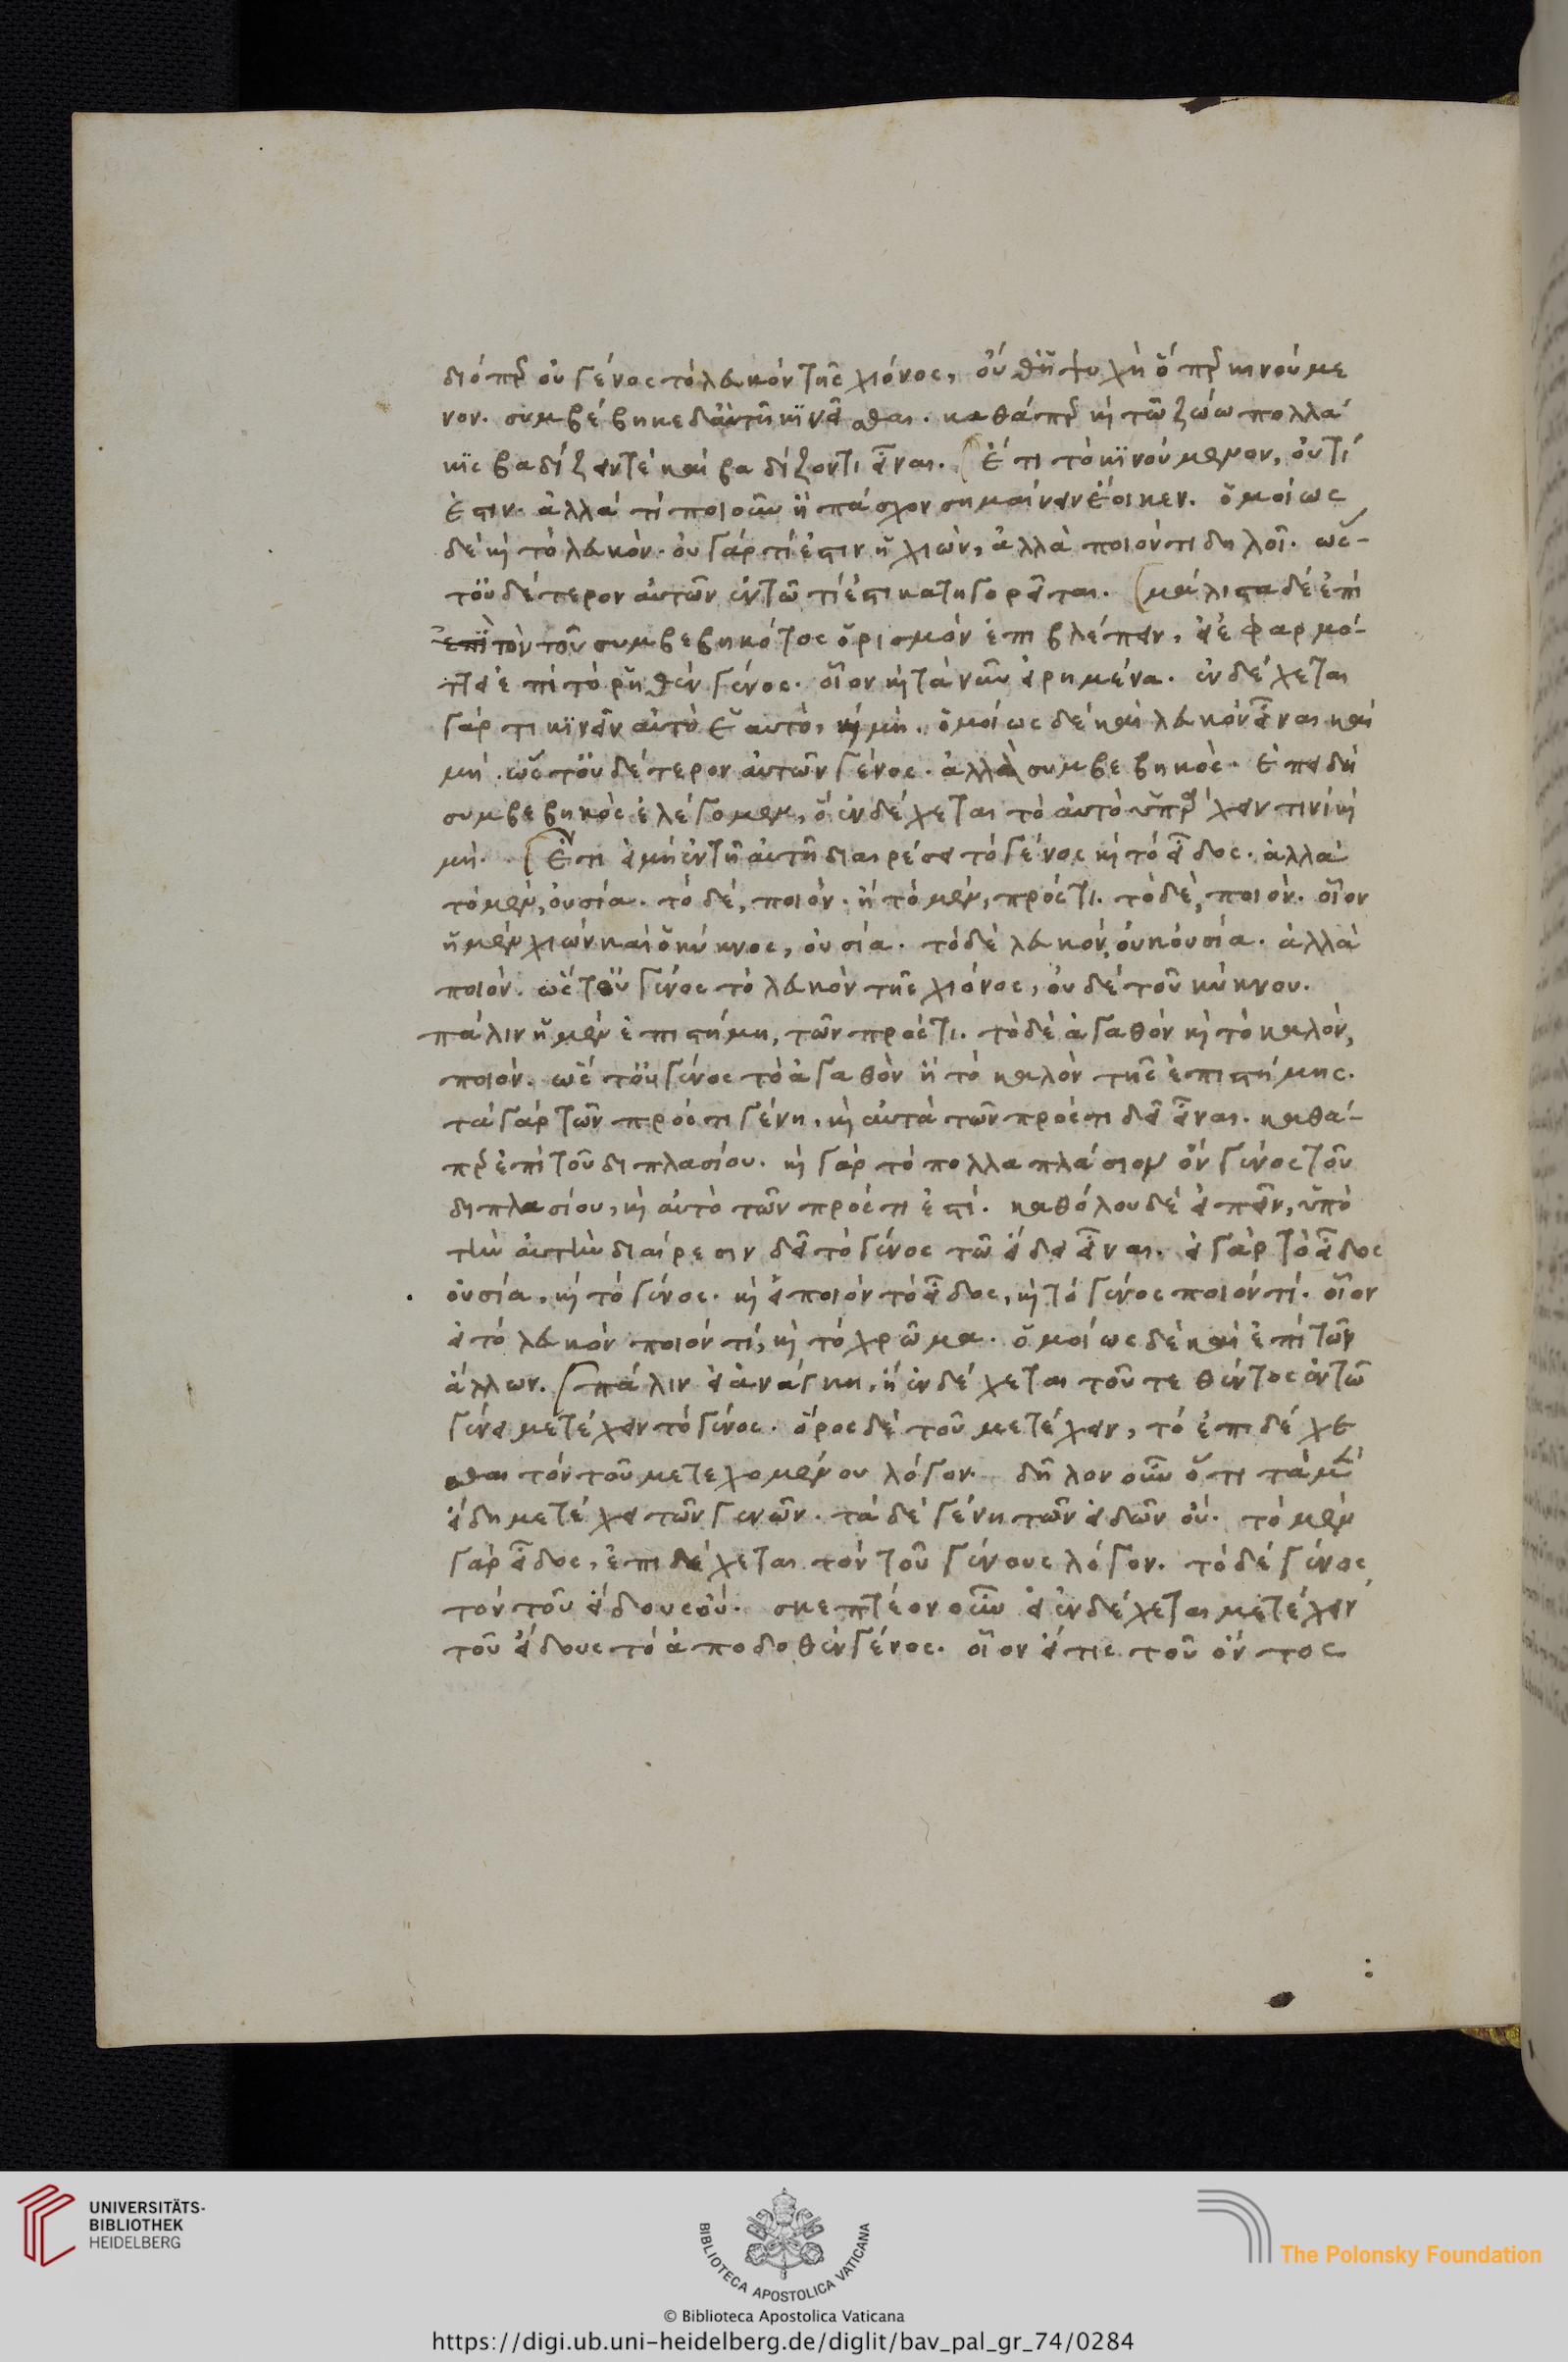 διόπερ οὐ γένος τὸ λευκὸν τῆς χιόνος, οὐδὲ ψυχὴ ὅπερ κινούμε
νον. συμβέβηκε δ' αὐτῆ κινεῖσθαι. καθάπερ καὶ τῶ ζώω πολλά
κις βαδίζειν τὲ καὶ βαδίζοντι εἶναι. Ἔτι τὸ κινούμενον, οὐ τί
ἐστιν. ἀλλά τί ποιοῦν ἢ πάσχον σημαίνειν ἔοικεν. ὁμοίως
δὲ καὶ τὸ λευκόν. οὐ γὰρ τί ἐστιν ἡ χιὼν, ἀλλὰ ποιόν τι δηλοῖ. ὥσ-
τ' οὐδέτερον αὐτῶν ἐν τῶ τί ἐστι κατηγορεῖται. μάλιστα δὲ ἐπὶ
ἐπὶ τὸν τοῦ συμβεβηκότος ὁρισμὸν ἐπιβλέπειν, εἰ ἐφαρμό-
ττει ἐπὶ τὸ ῥηθὲν γένος. οἷον καὶ τὰ νῦν εἰρημένα. ἐνδέχεται
γάρ τι κινεῖν αὐτὸ ἑαυτὸ, καὶ μή. ὁμοίως δὲ καὶ λευκὸν εἶναι καὶ
μή. ὥστ' οὐδέτερον αὐτῶν γένος. ἀλλὰ συμβεβηκός. ἐπειδὴ
συμβεβηκὸς ἐλέγομεν, ὃ ἐνδέχεται τὸ αὐτὸ ὑπάρχειν τινὶ καὶ
μή. Ἔτι εἰ μὴ ἐν τῆ αὐτῆ διαιρέσει τὸ γένος καὶ τὸ εἶδος. ἀλλὰ
τὸ μὲν, οὐσία. τὸ δὲ, ποιόν. ἢ τὸ μὲν, πρός τι. τὸ δὲ, ποιόν. οἷον
ἡ μὲν χιὼν καὶ ὁ κύκνος, οὐσία. τὸ δὲ λευκόν, οὐκ οὐσία. ἀλλὰ
ποιόν. ὥστ' οὐ γένος τὸ λευκὸν τῆς χιόνος, οὐδὲ τοῦ κύκνου.
πάλιν ἡ μὲν ἐπιστήμη, τῶν πρός τι. τὸ δὲ ἀγαθὸν καὶ τὸ καλόν,
ποιόν. ὥστ' οὐ γένος τὸ ἀγαθὸν ἢ τὸ καλὸν τῆς ἐπιστήμης.
τὰ γὰρ τῶν πρός τι γένη, καὶ αὐτὰ τῶν πρός τι δεῖ εἶναι. καθά-
περ ἐπὶ τοῦ διπλασίου. καὶ γὰρ τὸ πολλαπλάσιον ὂν γένος τοῦ
διπλασίου, καὶ αὐτὸ τῶν πρός τι ἐστί. καθόλου δὲ εἰπεῖν, ὑπὸ
τὴν αὐτὴν διαίρεσιν δεῖ τὸ γένος τῶ εἴδει εἶναι. εἰ γὰρ τὸ εἶδος
οὐσία, καὶ τὸ γένος. καὶ εἰ ποιὸν τὸ εἶδος, καὶ τὸ γένος ποιόν τί. οἷον
εἰ τὸ λευκὸν ποιόν τί, καὶ τὸ χρῶμα. ὁμοίως δὲ καὶ ἐπὶ τῶν
ἄλλων. πάλιν εἰ ἀνάγκη, ἢ ἐνδέχεται τοῦ τεθέντος ἐν τῶ
γένει μετέχειν τὸ γένος. ὅρος δὲ τοῦ μετέχειν, τὸ ἐπιδέχε
σθαι τὸν τοῦ μετεχομένου λόγον. δῆλον οὖν ὅτι τὰ μὲν
εἴδη μετέχει τῶν γενῶν. τὰ δὲ γένη τῶν εἰδῶν οὔ. τὸ μὲν
γὰρ εἶδος, ἐπιδέχεται τὸν τοῦ γένους λόγον. τὸ δὲ γένος
τὸν τοῦ εἴδους οὔ. σκεπτέον οὖν εἰ ἐνδέχεται μετέχειν
τοῦ εἴδους τὸ ἀποδοθὲν γένος. οἷον εἴ τις τοῦ ὄντος
UNIVERSITÄTS-
BIBLIOTHEK
HEIDELBERG
BIBLIOTECA APOSTOLICA VATICANA
The Polonsky Foundation
© Biblioteca Apostolica Vaticana
https://digi.ub.uni-heidelberg.de/diglit/bav_pal_gr_74/0284